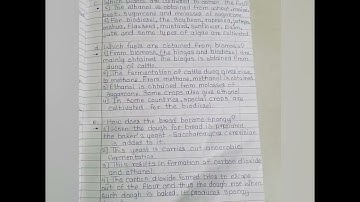 Which plants are cultivated to obtain the fuel?
→ 1] The ethanol is obtained from plants like
wheat, sugarcane and molasses of sugarcane.
2] For biodiesel, the soybean,
flaxseed, mustard, sunflower,
jute and some types of algae are cultivated.
d. Which fuels are obtained from biomass?
→ 1] From biomass, the biogas and biodiesel are
mainly obtained. The biogas is obtained from
dung of cattle
2] The fermentation of cattle dung gives rise
to methane. From methane, methanol is obtained
3] Ethanol is obtained from molasses of
sugarcane. Some crops also give ethanol
4] In some countries, special crops are
cultivated for the biodiesel.
e. How does the bread become spongy?
→ 1] When the dough for bread is prepared
the baker's yeast - Saccharomyces cerevisiae
is added to it.
2] This yeast is carries out anaerobic
fermentation.
3] This results in formation of carbon dioxide
and ethanol.
4] The carbon dioxide formed tries to escape
out of the flour and thus the dough rise when
such dough is baked it produces spongy